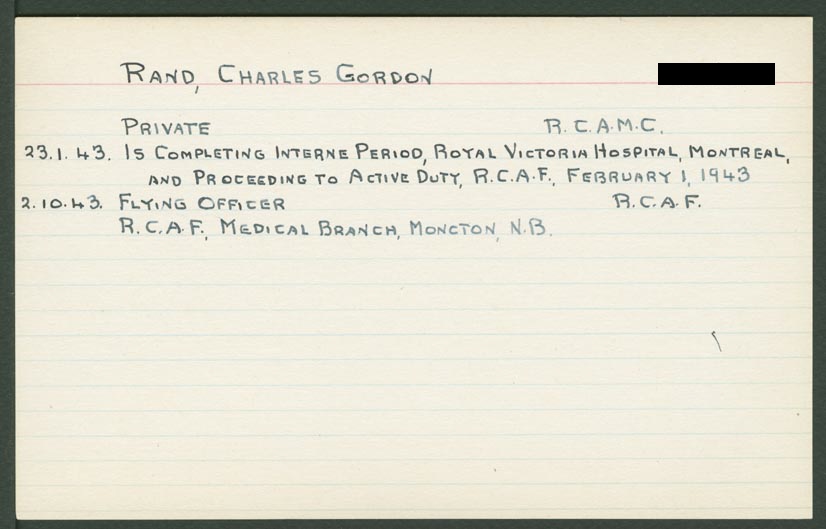 RAND, CHARLES GORDON
PRIVATE R.C.A.M.C.
23.1.43. IS COMPLETING INTERNE PERIOD, ROYAL VICTORIA HOSPITAL, MONTREAL,
AND PROCEEDING TO ACTIVE DUTY, R.C.A.F., FEBRUARY 1, 1943
2.10.43. FLYING OFFICER R.C.A.F.
R.C.A.F., MEDICAL BRANCH, MONCTON, N.B.